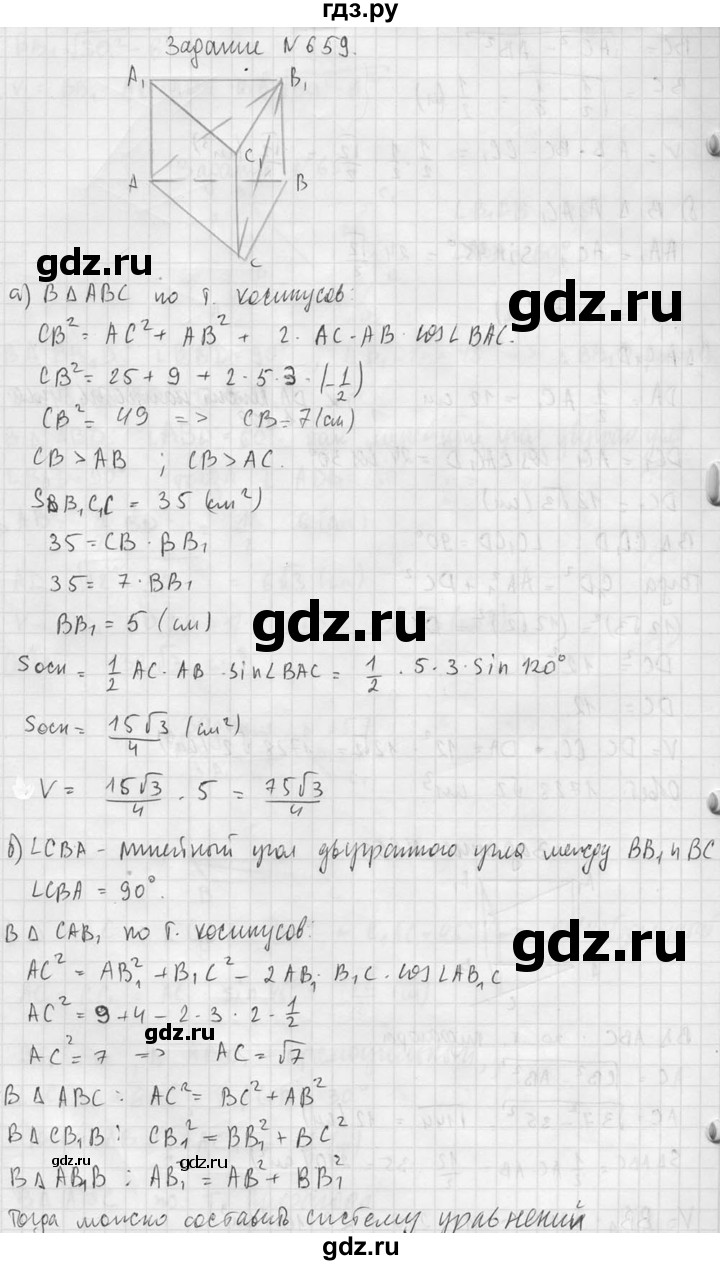 гдз.ру
Задание №659.
A₁ B₁
C₁
A B
C
gdz.ru gdz.ru
а) В Δ ABC по т. косинусов:
CB² = AC² + AB² + 2 · AC · AB · cos∠BAC.
CB² = 25 + 9 + 2 · 5 · 3 · (-1/2)
CB² = 49 => CB = 7 (см)
CB > AB ; CB > AC.
S BB₁C₁C = 35 (см²)
35 = CB · BB₁
35 = 7 · BB₁
gdz.ru
BB₁ = 5 (см)
Sосн = 1/2 AC · AB · sin∠BAC = 1/2 · 5 · 3 · sin 120°
Sосн = 15√3/4 (см²)
V = 15√3/4 · 5 = 75√3/4
б) ∠CBA - линейный угол двугранного угла между BB₁ и BC
∠CBA = 90°.
В Δ CAB₁ по т. косинусов:
gdz.ru
AC² = AB₁² + B₁C² - 2AB₁ · B₁C · cos∠AB₁C
AC² = 9 + 4 - 2 · 3 · 2 · 1/2
gdz.ru
AC² = 7 => AC = √7
В Δ ABC : AC² = BC² + AB²
В Δ CB₁B : CB₁² = BB₁² + BC²
gdz.ru gdz.ru
В Δ AB₁B : AB₁² = AB² + BB₁²
Тогда можно составить систему уравнений
gdz.ru